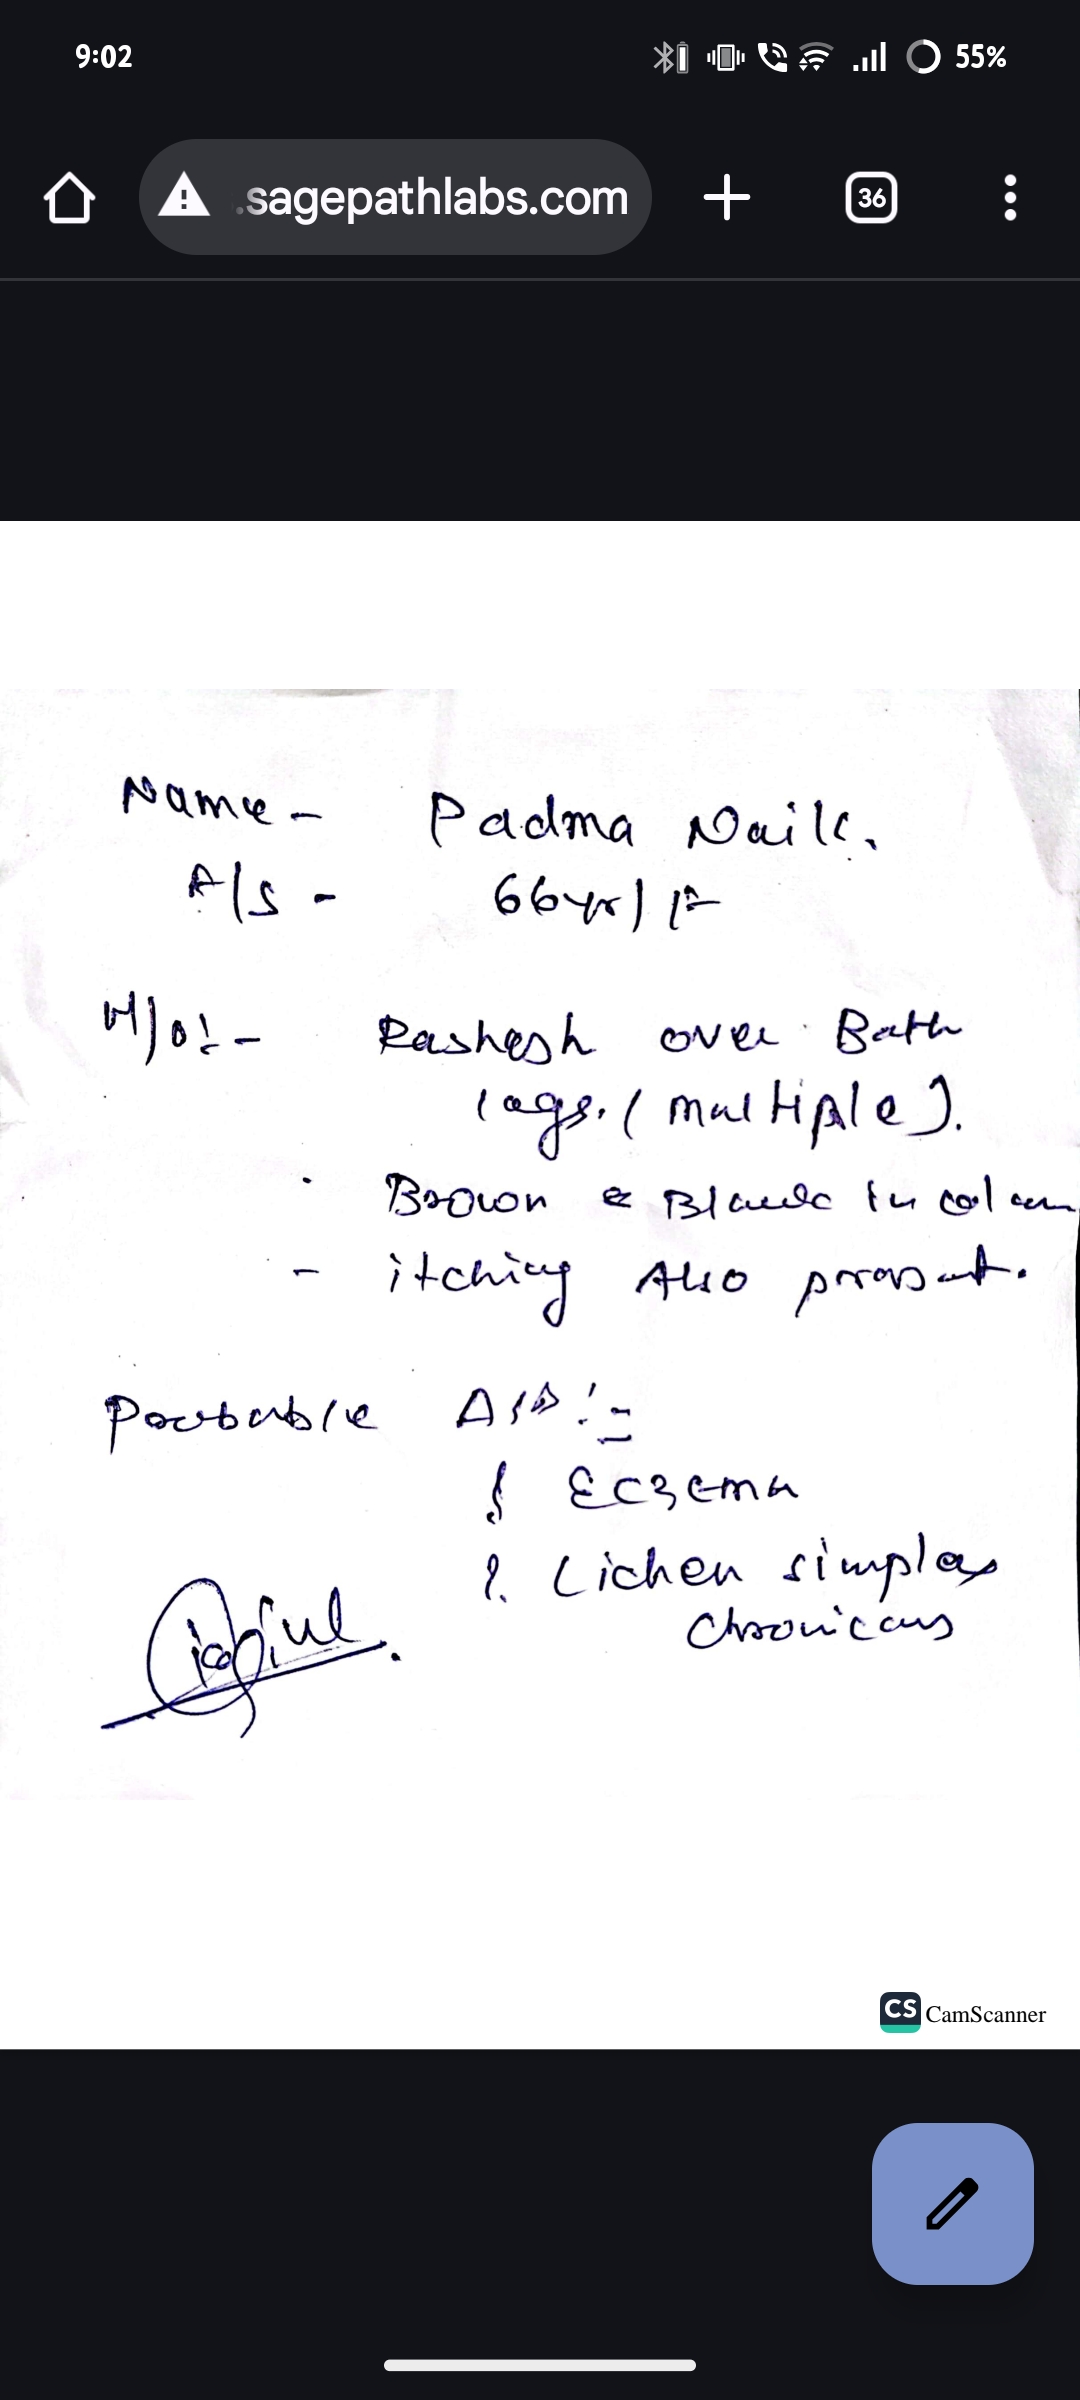 9:02
55%
.sagepathlabs.com
36
Name - Padma Naik.
A/S - 66yr/F
H/O:- Rashesh over Both
legs. (multiple).
Brown & Black in colour
- itching Also present.
Probable Δ/Δ:-
? Eczema
? Lichen simplex
chronicus
CS CamScanner